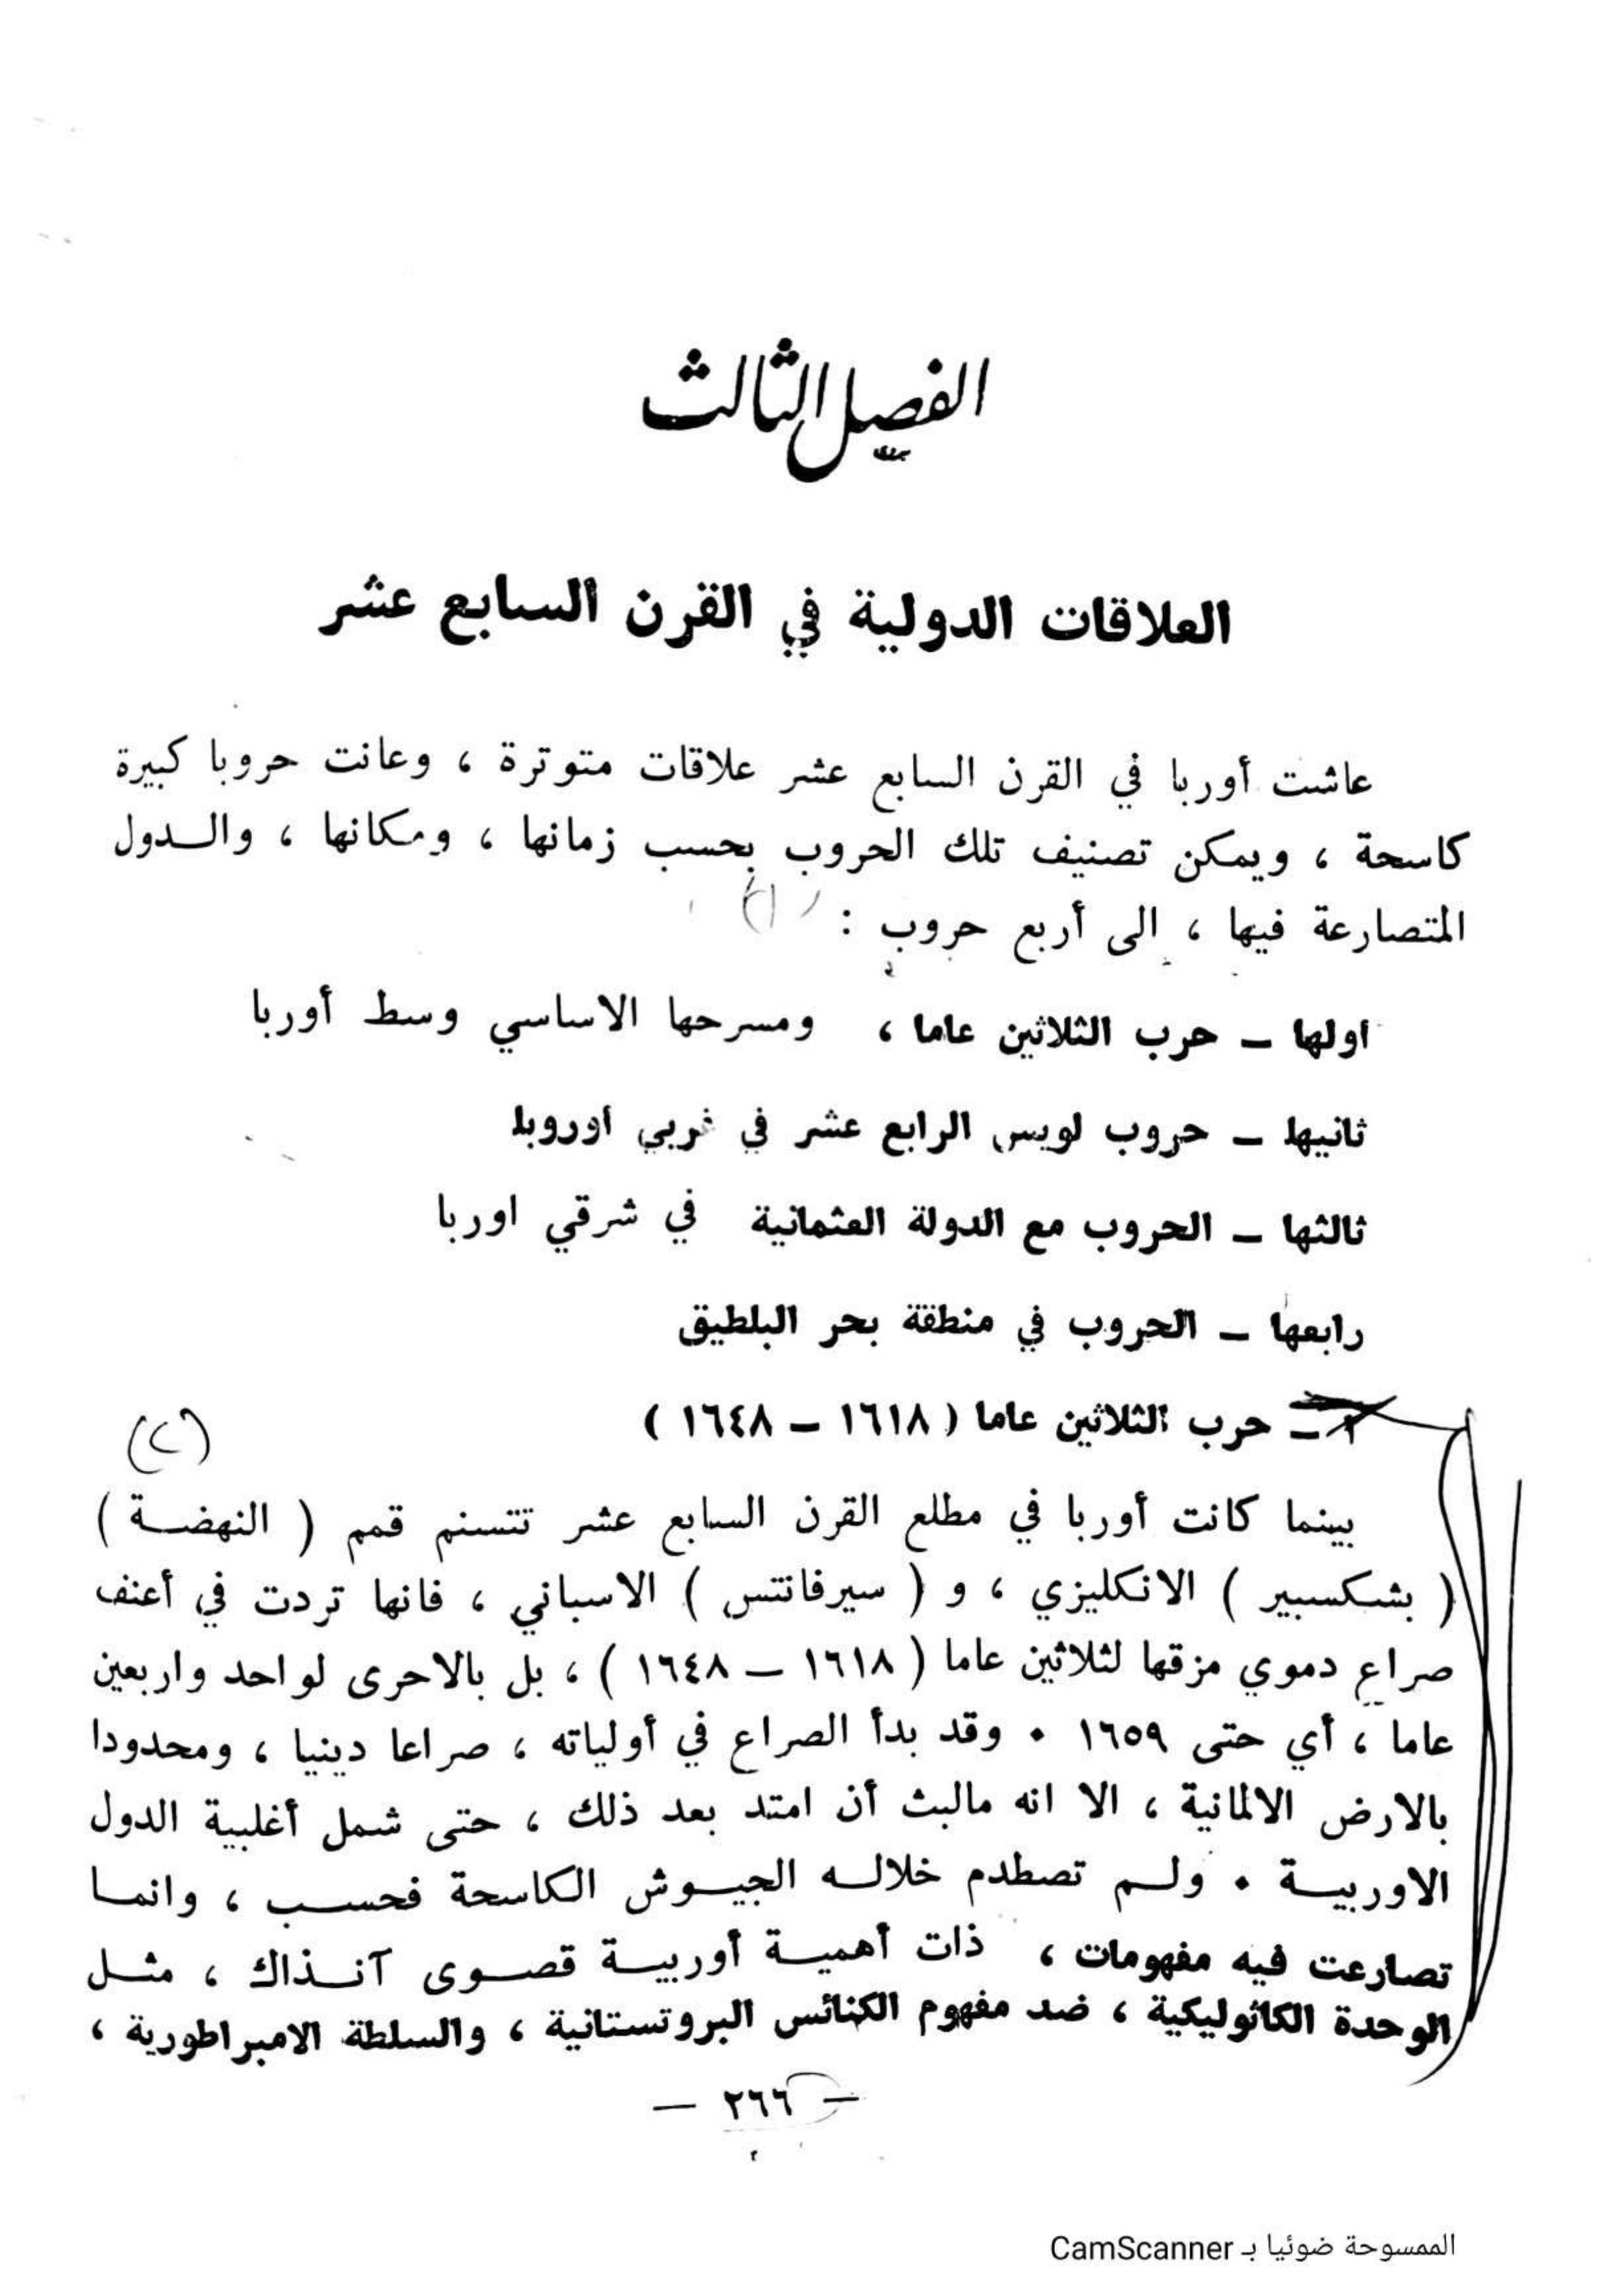 الفصل الثالث
العلاقات الدولية في القرن السابع عشر
عاشت أوربا في القرن السابع عشر علاقات متوترة ، وعانت حروبا كبيرة
كاسحة ، ويمكن تصنيف تلك الحروب بحسب زمانها ، ومكانها ، والدول
المتصارعة فيها ، الى أربع حروب :
اولها – حرب الثلاثين عاما ، ومسرحها الاساسي وسط أوربا
ثانيها – حروب لويس الرابع عشر في غربي اوروبا
ثالثها – الحروب مع الدولة العثمانية في شرقي اوربا
رابعها – الحروب في منطقة بحر البلطيق
١ – حرب الثلاثين عاما ( ١٦١٨ – ١٦٤٨ )
بينما كانت أوربا في مطلع القرن السابع عشر تتسنم قمم ( النهضة )
( بشكسبير ) الانكليزي ، و ( سيرفانتس ) الاسباني ، فانها تردت في أعنف
صراع دموي مزقها لثلاثين عاما ( ١٦١٨ – ١٦٤٨ ) ، بل بالاحرى لواحد واربعين
عاما ، أي حتى ١٦٥٩ . وقد بدأ الصراع في أولياته ، صراعا دينيا ، ومحدودا
بالارض الالمانية ، الا انه مالبث أن امتد بعد ذلك ، حتى شمل أغلبية الدول
الاوربية . ولم تصطدم خلاله الجيوش الكاسحة فحسب ، وانما
تصارعت فيه مفهومات ، ذات أهمية أوربية قصوى آنذاك ، مثل
الوحدة الكاثوليكية ، ضد مفهوم الكنائس البروتستانية ، والسلطة الامبراطورية ،
– ٢٦٦ –
الممسوحة ضوئيا بـ CamScanner